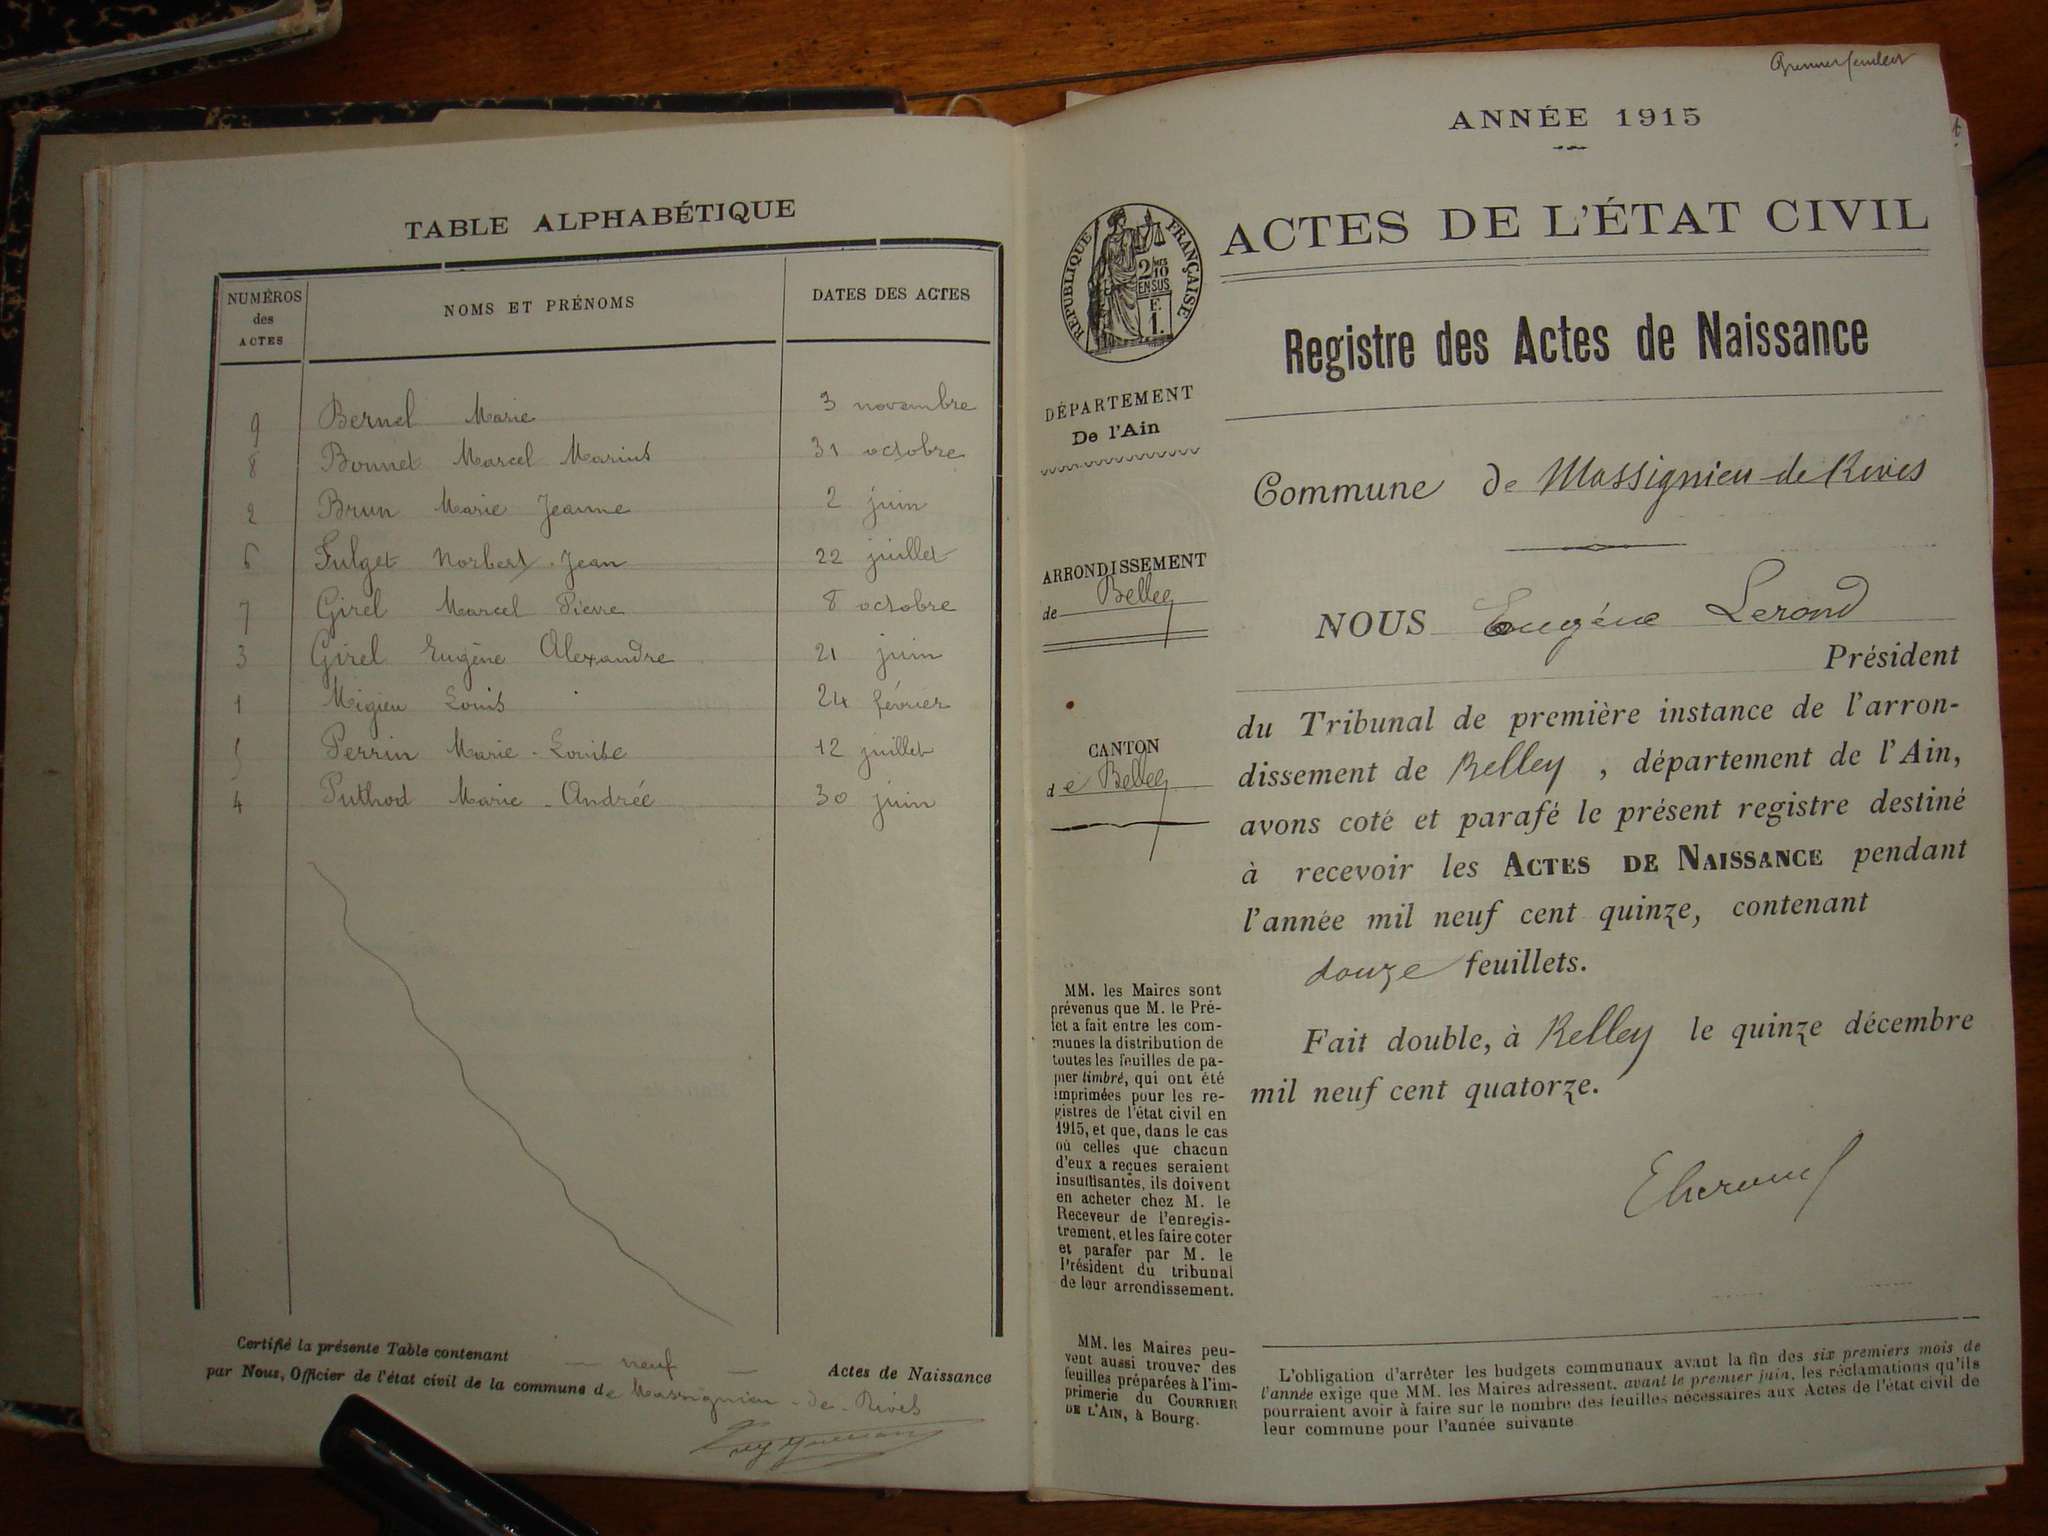 TABLE ALPHABÉTIQUE
NUMÉROS des ACTES NOMS ET PRÉNOMS DATES DES ACTES
9 Bernel Marie 3 novembre
8 Bonnet Marcel Marius 31 octobre
2 Brun Marie Jeanne 2 juin
6 Fulget Norbert Jean 22 juillet
7 Girel Marcel Pierre 8 octobre
3 Girel Eugène Alexandre 21 juin
1 Migieu Louis 24 février
5 Perrin Marie-Louise 12 juillet
4 Puthod Marie-Andrée 30 juin
Certifié la présente Table contenant — neuf — Actes de Naissance
par Nous, Officier de l'état civil de la commune de Massignieu-de-Rives
Premier feuillet
ANNÉE 1915
ACTES DE L'ÉTAT CIVIL
RÉPUBLIQUE FRANÇAISE
2/10 EN SUS
F.
1.
Registre des Actes de Naissance
DÉPARTEMENT
De l'Ain
Commune de Massignieu-de-Rives
ARRONDISSEMENT
de Belley
CANTON
de Belley
NOUS Eugéne Lerond
Président
du Tribunal de première instance de l'arron-
dissement de Belley, département de l'Ain,
avons coté et parafé le présent registre destiné
à recevoir les ACTES DE NAISSANCE pendant
l'année mil neuf cent quinze, contenant
douze feuillets.
Fait double, à Belley le quinze décembre
mil neuf cent quatorze.
ELerond
MM. les Maires sont
prévenus que M. le Pré-
fet a fait entre les com-
munes la distribution de
toutes les feuilles de pa-
pier timbré, qui ont été
imprimées pour les re-
gistres de l'état civil en
1915, et que, dans le cas
où celles que chacun
d'eux a reçues seraient
insuffisantes, ils doivent
en acheter chez M. le
Receveur de l'enregis-
trement, et les faire coter
et parafer par M. le
Président du tribunal
de leur arrondissement.
MM. les Maires peu-
vent aussi trouver des
feuilles préparées à l'im-
primerie du COURRIER
DE L'AIN, à Bourg.
L'obligation d'arrêter les budgets communaux avant la fin des six premiers mois de
l'année exige que MM. les Maires adressent, avant le premier juin, les réclamations qu'ils
pourraient avoir à faire sur le nombre des feuilles nécessaires aux Actes de l'état civil de
leur commune pour l'année suivante